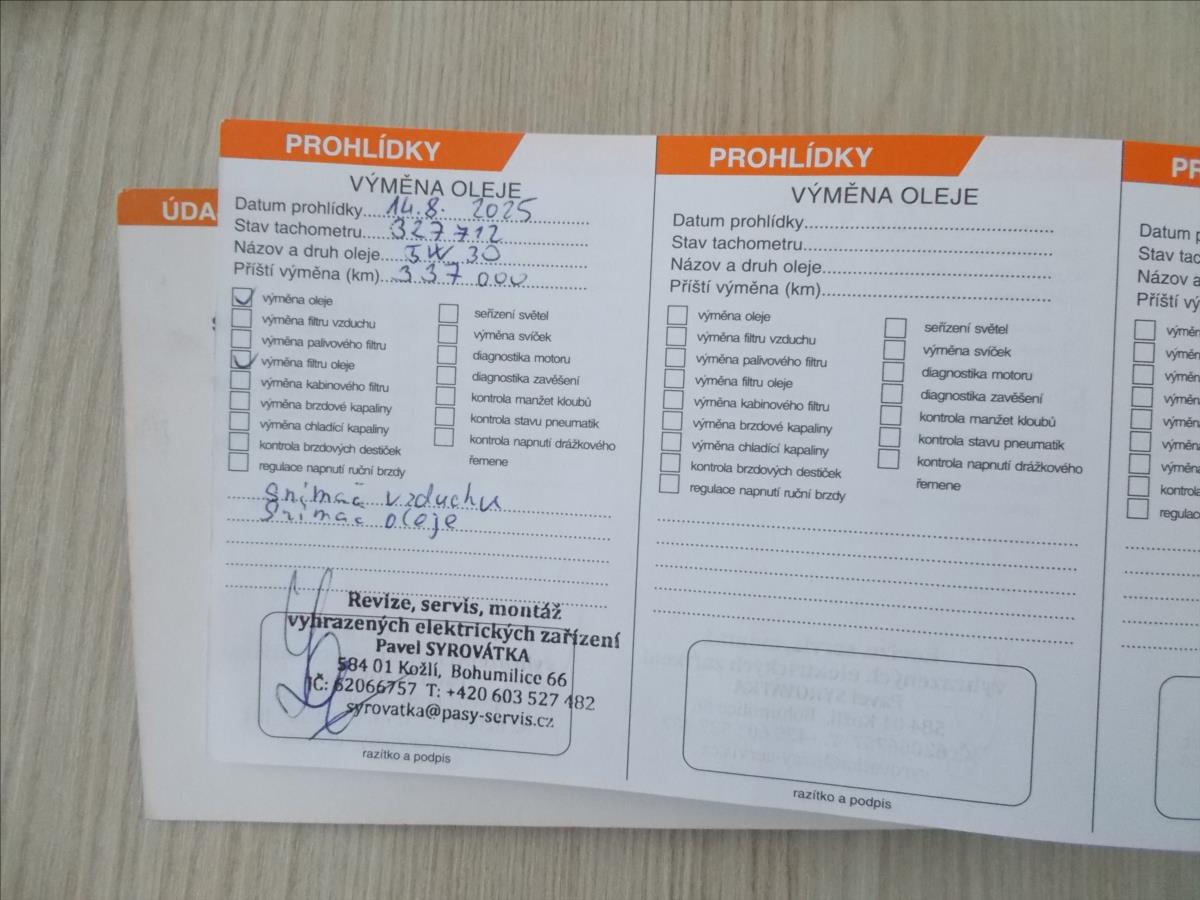 ÚDA
PROHLÍDKY
VÝMĚNA OLEJE
Datum prohlídky....14.8. 2025
Stav tachometru....327 712
Názov a druh oleje....5W 30
Příští výměna (km)....337 000
výměna oleje
výměna filtru vzduchu
výměna palivového filtru
výměna filtru oleje
výměna kabinového filtru
výměna brzdové kapaliny
výměna chladící kapaliny
kontrola brzdových destiček
regulace napnutí ruční brzdy
seřízení světel
výměna svíček
diagnostika motoru
diagnostika zavěšení
kontrola manžet kloubů
kontrola stavu pneumatik
kontrola napnutí drážkového
řemene
Snímač vzduchu
Snímač oleje
Revize, servis, montáž
vyhrazených elektrických zařízení
Pavel SYROVÁTKA
584 01 Kožlí, Bohumilice 66
IČ: 62066757 T: +420 603 527 482
syrovatka@pasy-servis.cz
razítko a podpis
PROHLÍDKY
VÝMĚNA OLEJE
Datum prohlídky
Stav tachometru
Názov a druh oleje
Příští výměna (km)
výměna oleje
výměna filtru vzduchu
výměna palivového filtru
výměna filtru oleje
výměna kabinového filtru
výměna brzdové kapaliny
výměna chladící kapaliny
kontrola brzdových destiček
regulace napnutí ruční brzdy
seřízení světel
výměna svíček
diagnostika motoru
diagnostika zavěšení
kontrola manžet kloubů
kontrola stavu pneumatik
kontrola napnutí drážkového
řemene
razítko a podpis
PR
Datum p
Stav tac
Názov a
Příští vý
výměn
výměn
výměn
výměn
výměn
výměn
výměn
kontro
regulac